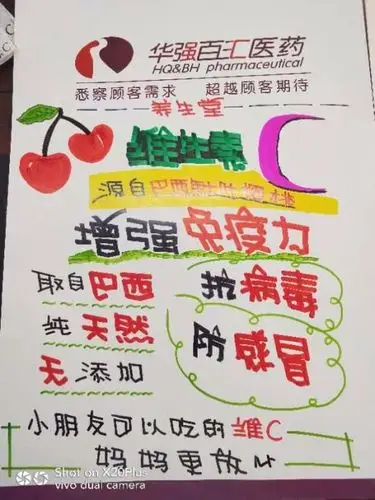 华强百汇医药
HQ&BH pharmaceutical
悉察顾客需求 超越顾客期待
养生堂
维生素C
源自巴西野生樱桃
增强免疫力
取自巴西
纯天然
无添加
抗病毒
防感冒
小朋友可以吃的维C
妈妈更放心
Shot on X20Plus
vivo dual camera